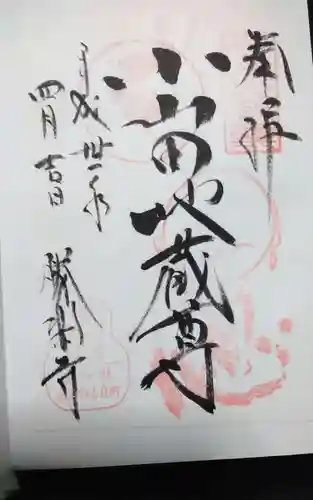 奉拝
小山田地蔵尊
平成卅一年
四月吉日
勝楽寺